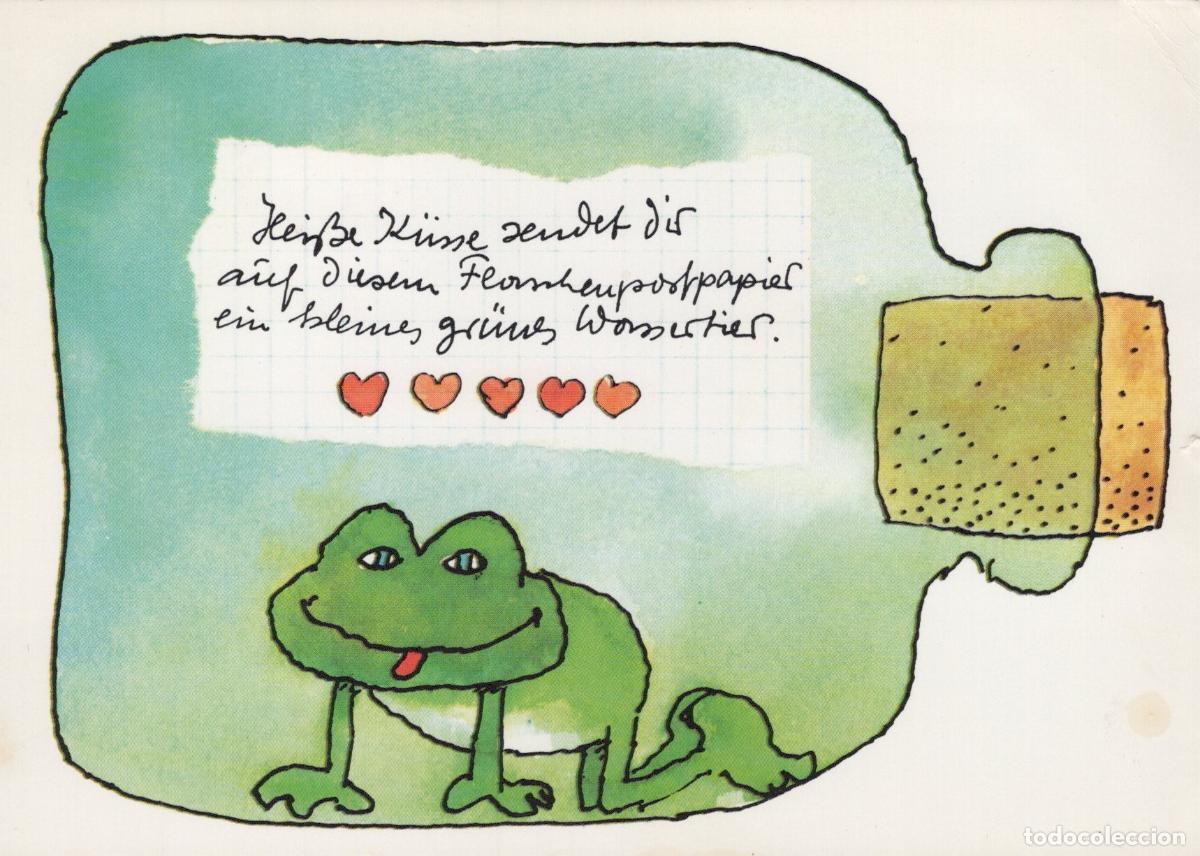 Heiße Küsse sendet dir
auf diesem Flaschenpostpapier
ein kleines grünes Wassertier.
todocoleccion